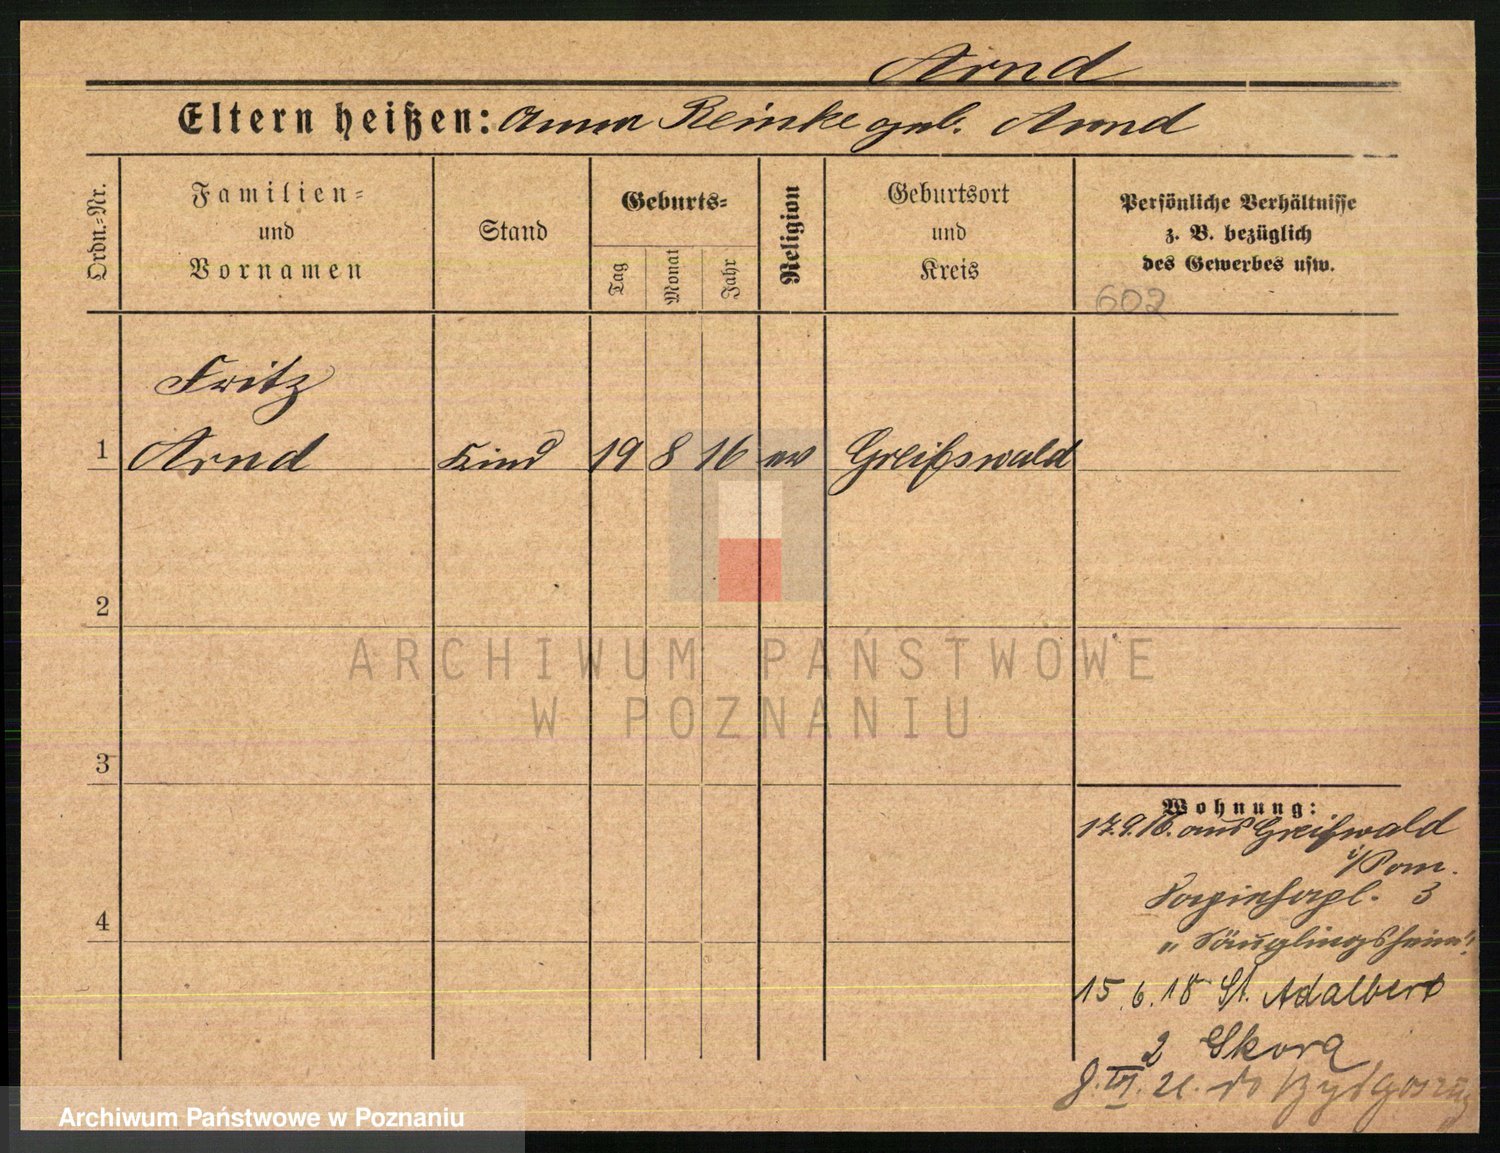 Arnd
Eltern heißen: Anna Reinke geb. Arnd
Ordn.=Nr.
Familien=
und
Vornamen
Stand
Geburts=
Tag
Monat
Jahr
Religion
Geburtsort
und
Kreis
Persönliche Verhältnisse
z. B. bezüglich
des Gewerbes usw.
602
Fritz
1 Arnd Kind 19 8 16 ev Greifswald
2
3
4
ARCHIWUM PAŃSTWOWE
W POZNANIU
Wohnung:
17.9.16. aus Greifswald
i/Pom.
3
„Säuglingsheim"
15.6.18 St. Adalbert
2 Skora
do Bydgoszczy
Archiwum Państwowe w Poznaniu